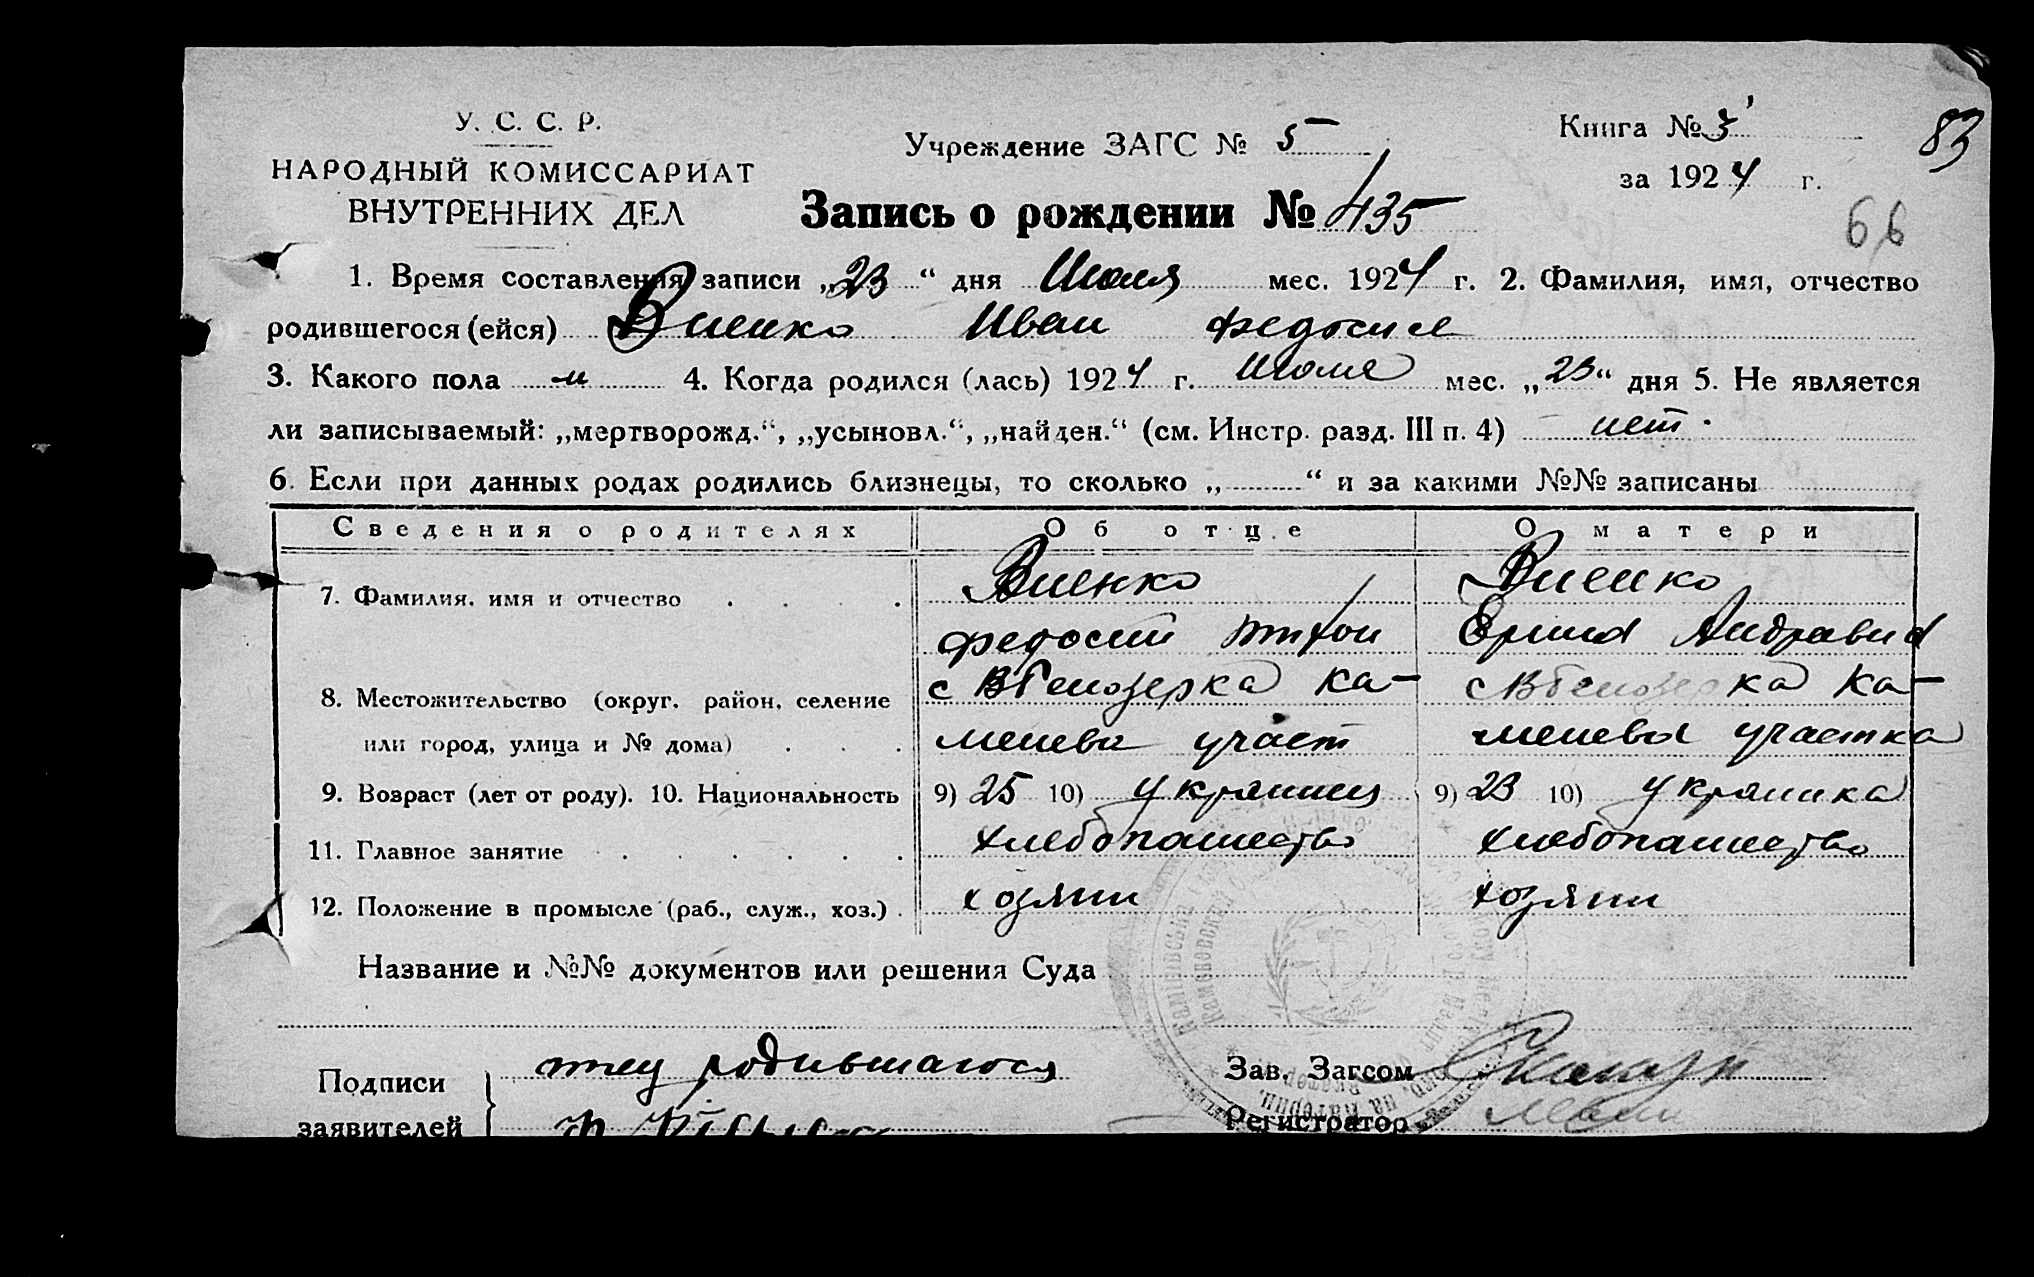 У. С. С. Р.
НАРОДНЫЙ КОМИССАРИАТ
ВНУТРЕННИХ ДЕЛ
Учреждение ЗАГС № 5
Книга № 3
за 1924 г.
83
66
Запись о рождении № 435
1. Время составления записи „23“ дня Июля мес. 1924 г. 2. Фамилия, имя, отчество
родившегося (ейся) Виенко Иван Федосие
3. Какого пола м 4. Когда родился (лась) 1924 г. Июля мес. „23“ дня 5. Не является
ли записываемый: „мертворожд.“, „усыновл.“, „найден.“ (см. Инстр. разд. III п. 4) нет.
6. Если при данных родах родились близнецы, то сколько „ “ и за какими №№ записаны
Сведения о родителях Об отце О матери
7. Фамилия, имя и отчество Виенко Виенко
Федосий Тихон Андравна
8. Местожительство (округ, район, селение с Белозерка Ка- с Белозерка Ка-
или город, улица и № дома) менева участ менева участка
9. Возраст (лет от роду). 10. Национальность 9) 25 10) украинец 9) 23 10) украинка
11. Главное занятие хлебопашество хлебопашество
12. Положение в промысле (раб., служ., хоз.) хозяин хозяин
Название и №№ документов или решения Суда
Подписи отец родившагося
заявителей
Зав. Загсом
Регистратор